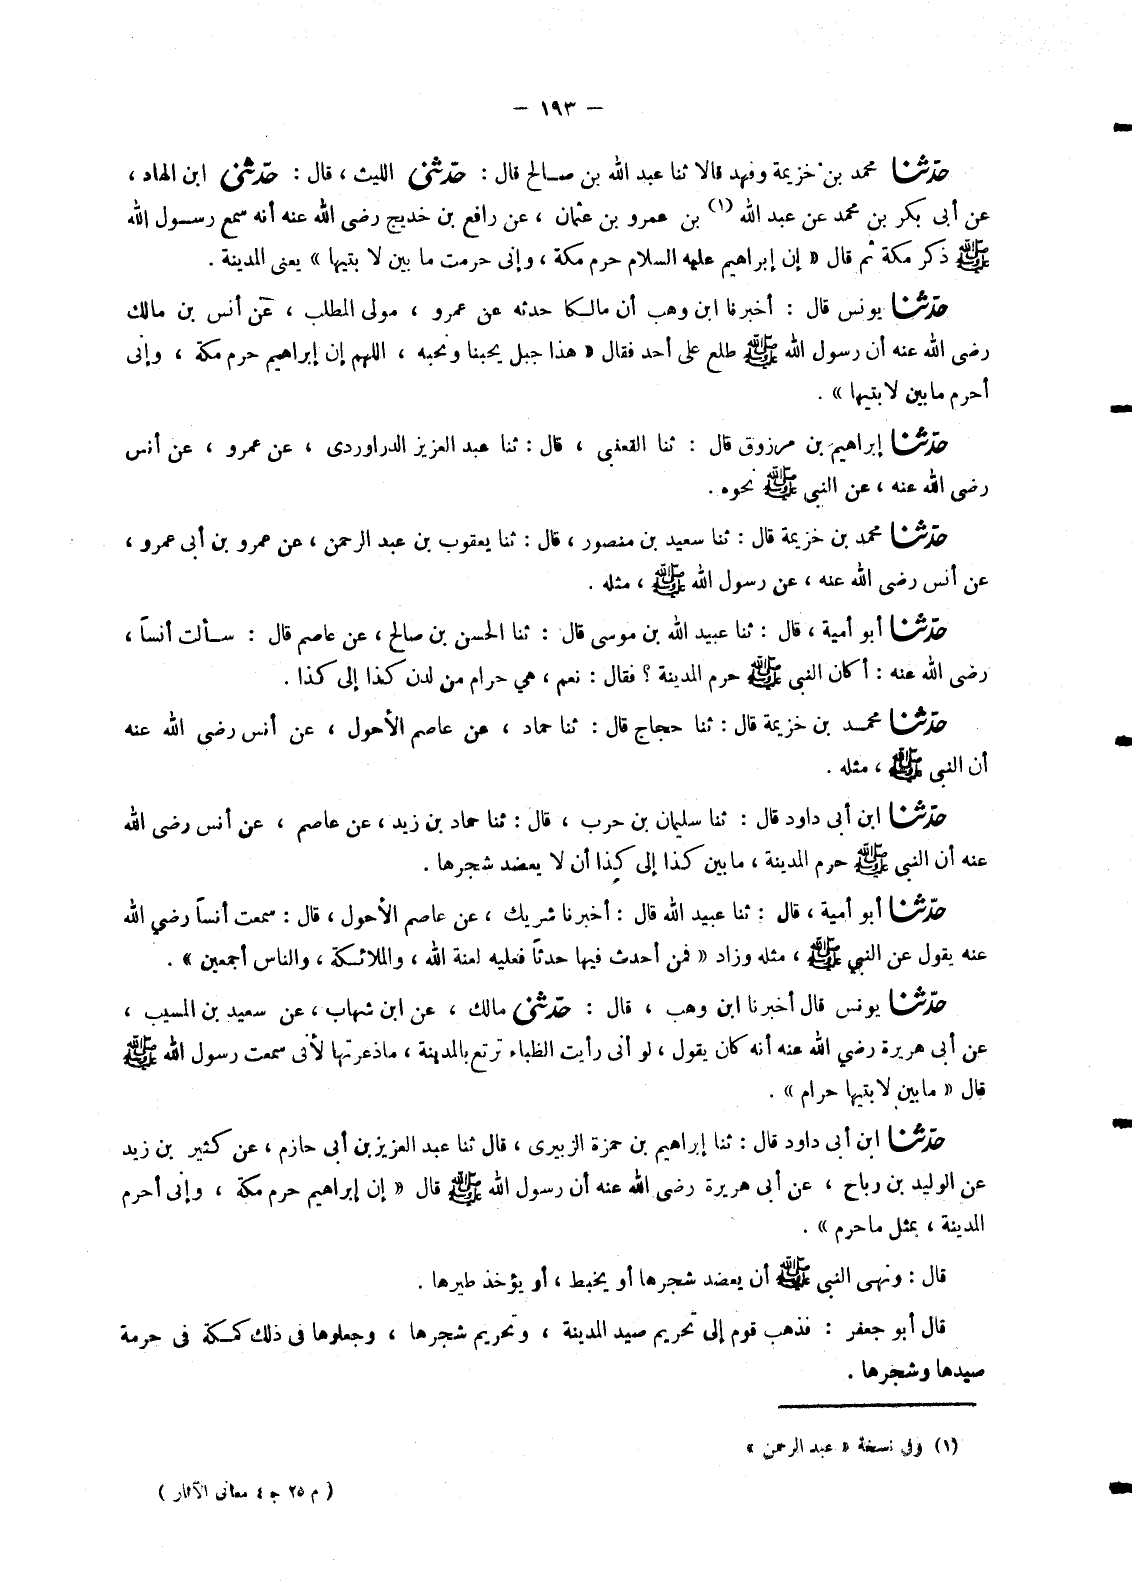 — ١٩٣ —
حدّثنا محمد بن خزيمة وفهد قالا ثنا عبد الله بن صالح قال : حدّثني الليث ، قال : حدّثني ابن الهاد ،
عن أبى بكر بن محمد عن عبد الله (١) بن عمرو بن عثمان ، عن رافع بن خديج رضى الله عنه أنه سمع رسول الله
ﷺ ذكر مكة ثم قال « إن إبراهيم عليه السلام حرم مكة ، وإنى حرمت ما بين لا بتيها » يعنى المدينة .
حدّثنا يونس قال : أخبرنا ابن وهب أن مالكا حدثه عن عمرو ، مولى المطلب ، عن أنس بن مالك
رضى الله عنه أن رسول الله ﷺ طلع على أحد فقال « هذا جبل يحبنا ونحبه ، اللهم إن إبراهيم حرم مكة ، وإنى
أحرم مابين لابتيها » .
حدّثنا إبراهيم بن مرزوق قال : ثنا القعنبى ، قال : ثنا عبد العزيز الدراوردى ، عن عمرو ، عن أنس
رضى الله عنه ، عن النبى ﷺ نحوه .
حدّثنا محمد بن خزيمة قال : ثنا سعيد بن منصور ، قال : ثنا يعقوب بن عبد الرحمن ، عن عمرو بن أبى عمرو ،
عن أنس رضى الله عنه ، عن رسول الله ﷺ ، مثله .
حدّثنا أبو أمية ، قال : ثنا عبيد الله بن موسى قال : ثنا الحسن بن صالح ، عن عاصم قال : سألت أنساً ،
رضى الله عنه : أكان النبى ﷺ حرم المدينة ؟ فقال : نعم ، هي حرام من لدن كذا إلى كذا .
حدّثنا محمد بن خزيمة قال : ثنا حجاج قال : ثنا حماد ، عن عاصم الأحول ، عن أنس رضى الله عنه
أن النبى ﷺ ، مثله .
حدّثنا ابن أبى داود قال : ثنا سليمان بن حرب ، قال : ثنا حماد بن زيد ، عن عاصم ، عن أنس رضى الله
عنه أن النبى ﷺ حرم المدينة ، مابين كذا إلى كذا أن لا يعضد شجرها .
حدّثنا أبو أمية ، قال : ثنا عبيد الله قال : أخبرنا شريك ، عن عاصم الأحول ، قال : سمعت أنساً رضي الله
عنه يقول عن النبي ﷺ ، مثله وزاد « فمن أحدث فيها حدثاً فعليه لعنة الله ، والملائكة ، والناس أجمعين » .
حدّثنا يونس قال أخبرنا ابن وهب ، قال : حدّثني مالك ، عن ابن شهاب ، عن سعيد بن المسيب ،
عن أبى هريرة رضي الله عنه أنه كان يقول ، لو أنى رأيت الظباء ترتع بالمدينة ، ماذعرتها لأنى سمعت رسول الله ﷺ
قال « مابين لابتيها حرام » .
حدّثنا ابن أبى داود قال : ثنا إبراهيم بن حمزة الزبيرى ، قال ثنا عبد العزيز بن أبى حازم ، عن كثير بن زيد
عن الوليد بن رباح ، عن أبى هريرة رضى الله عنه أن رسول الله ﷺ قال « إن إبراهيم حرم مكة ، وإنى أحرم
المدينة ، بمثل ماحرم » .
قال : ونهى النبى ﷺ أن يعضد شجرها أو يخبط ، أو يؤخذ طيرها .
قال أبو جعفر : فذهب قوم إلى تحريم صيد المدينة ، وتحريم شجرها ، وجعلوها فى ذلك كمكة فى حرمة
صيدها وشجرها .
(١) وفى نسخة « عبد الرحمن »
( م ٢٥ ج ٤ معانى الآثار )